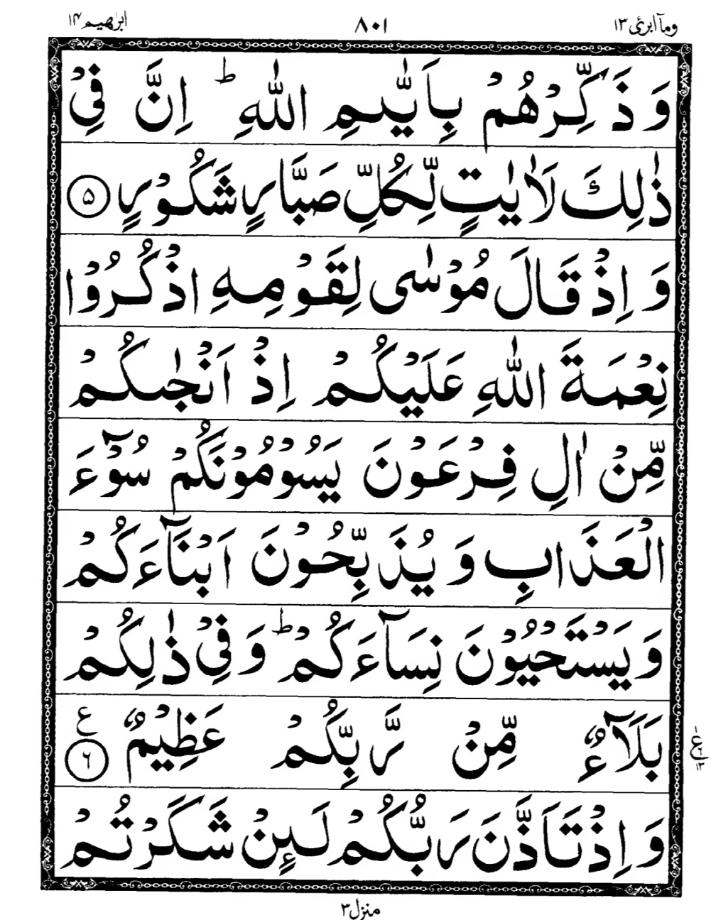 ابرٰهیم ۱۴ ۸۰۱ وما ابرئ ۱۳
وَ ذَكِّرْهُمْ بِاَيّٰىمِ اللّٰهِ ؕ اِنَّ فِيْ
ذٰلِكَ لَاٰيٰتٍ لِّكُلِّ صَبَّارٍ شَكُوْرٍ ۵
وَ اِذْ قَالَ مُوْسٰى لِقَوْمِهِ اذْكُرُوْا
نِعْمَةَ اللّٰهِ عَلَيْكُمْ اِذْ اَنْجٰىكُمْ
مِّنْ اٰلِ فِرْعَوْنَ يَسُوْمُوْنَكُمْ سُوْٓءَ
الْعَذَابِ وَ يُذَبِّحُوْنَ اَبْنَآءَكُمْ
وَ يَسْتَحْيُوْنَ نِسَآءَكُمْ ؕ وَ فِيْ ذٰلِكُمْ
بَلَآءٌ مِّنْ رَّبِّكُمْ عَظِيْمٌ ۶ ع
وَ اِذْ تَاَذَّنَ رَبُّكُمْ لَىِٕنْ شَكَرْتُمْ
منزل ۳